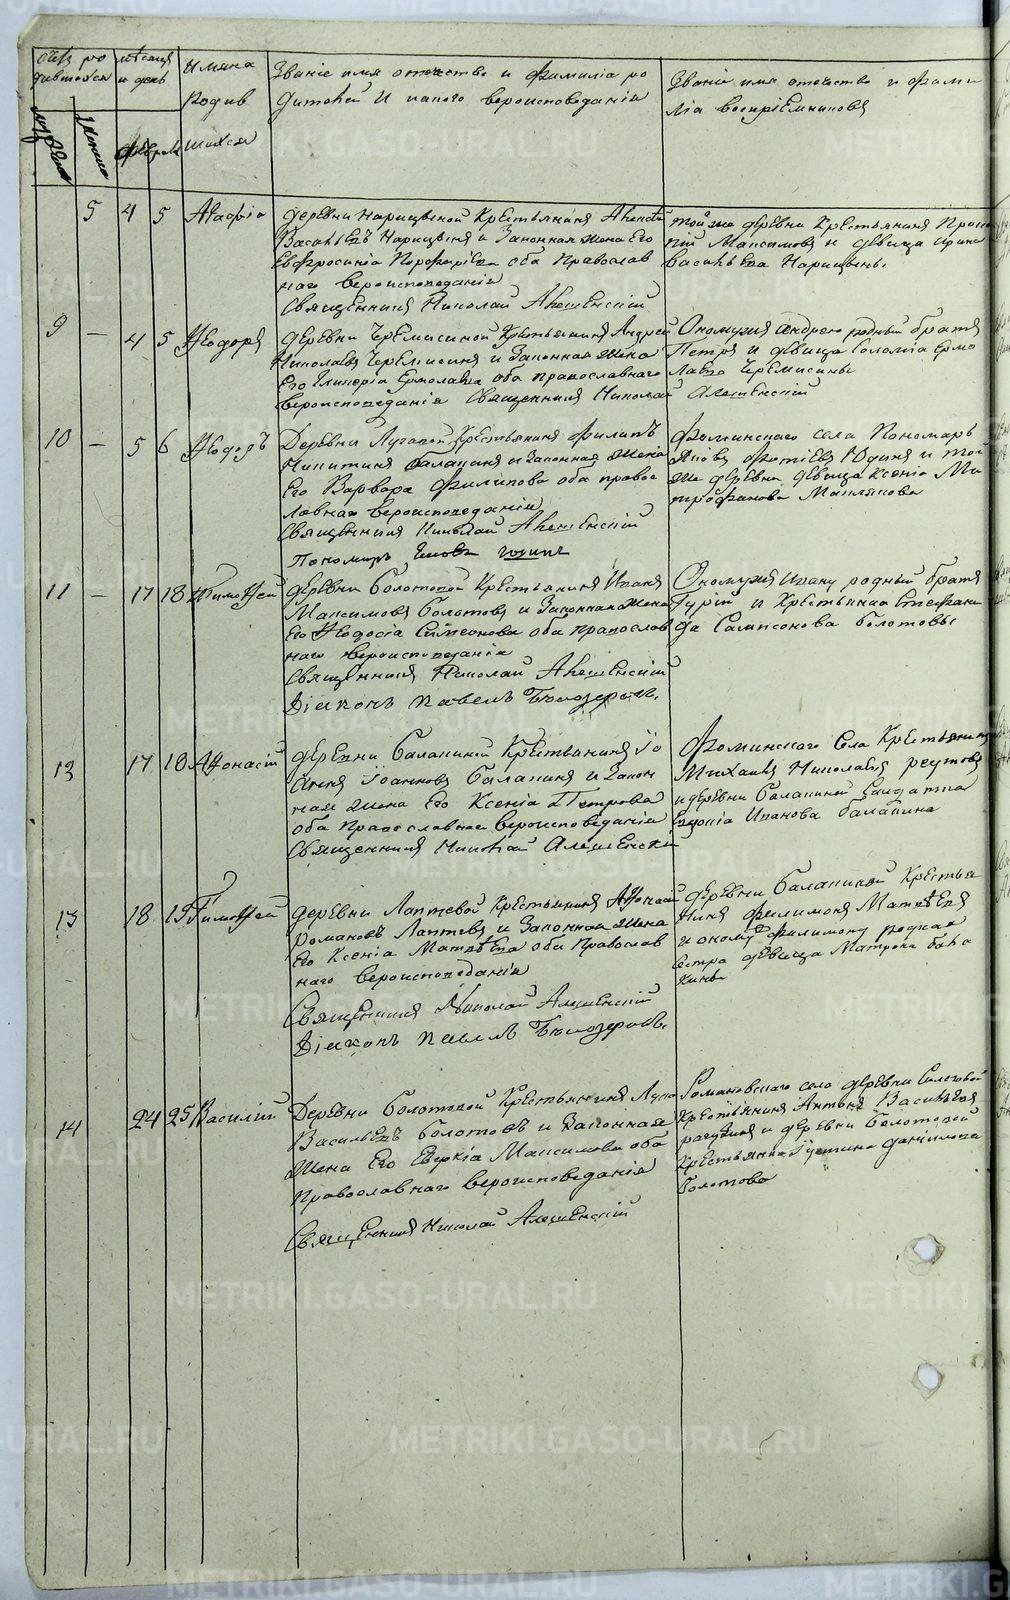 Счетъ ро
дившихся
мѣсяцъ
и день
Имяна
Родив
шихся
Званiе имя отечество и Фамилiа ро
дителей И какого вѣроисповѣданiя
Званiе имя отечество и фами
лiа воспрiемниковъ
мужеска
женска
Феврал
5 4 5 Агафiа
деревни Нарицыной Крестьянинъ Алексѣй
Васильевъ Нарицынъ и Законная жена Его
Евфросинiа Порфирiева оба Православ
наго вѣроисповѣданiя
Священникъ Николай Алешенскiй
тойже деревни Крестьянинъ Проко
пiй Максимовъ и дѣвица Ирина
Васильева Нарицыны
9 — 4 5 Ѳеодоръ
деревни Черемисиной Крестьянинъ Андрей
Николаевъ Черемисинъ и Законная жена
Его Гликерiа Ермолаева оба православнаго
вѣроисповѣданiя Священникъ Николай Алешенскiй
Оному же Андрею родный братъ
Петръ и дѣвица Соломiа Ермо
лаева Черемисины
10 — 5 6 Ѳеодоръ
Деревни Луговой Крестьянинъ Филипъ
Никитинъ Балакинъ и Законная жена
Его Варвара Филипова оба правос
лавнаго вѣроисповѣданiя
Священникъ Николай Алешенскiй
Пономарь Iаковъ Юдинъ
Фоминскаго села Пономарь
Яковъ Фотiевъ Юдинъ и той
же деревни дѣвица Ксенiа Ми
трофанова
11 — 17 18 Тимоѳей
деревни Болотовой Крестьянинъ Иванъ
Максимовъ Болотовъ и Законная жена
Его Ѳеодосiа Симеонова оба православ
наго вѣроисповѣданiя
Священникъ Николай Алешенскiй
Дiаконъ Павелъ Бѣлозеровъ
Оному же Ивану родный братъ
Гурiй и Крестьянка Стефани
да Сампсонова Болотовы
12 17 18 Аѳонасiй
деревни Балакиной Крестьянинъ Iо
аннъ Iоанновъ Балакинъ и Закон
ная жена Его Ксенiа Петрова
оба Православнаго вѣроисповѣданiя
Священникъ Николай Алешенскiй
Фоминскаго Села Крестьянинъ
Михаилъ Николаевъ Реутовъ
и деревни Балакиной Салдатка
Евдокiа Иванова Балакина
13 18 19 Тимоѳей
деревни Лаптевой Крестьянинъ Аѳонасiй
Романовъ Лаптевъ и Законная жена
Его Ксенiа Матвѣева оба Православ
наго вѣроисповѣданiя
Священникъ Николай Алешенскiй
Дiаконъ Павелъ Бѣлозеровъ
деревни Балакиной Крестья
нинъ Филимонъ Матвѣевъ
и оному Филимону родная
сестра дѣвица Матрона Бала
кины
14 24 25 Василiй
Деревни Болотовой Крестьянинъ Лука
Васильевъ Болотовъ и Законная
жена Его Евдокiа Максимова оба
Православнаго вѣроисповѣданiя
Священникъ Николай Алешенскiй
Романовскаго села деревни
Крестьянинъ Антонъ Васильевъ
и деревни Болотовой
Крестьянка Iустина Данилова
Болотова